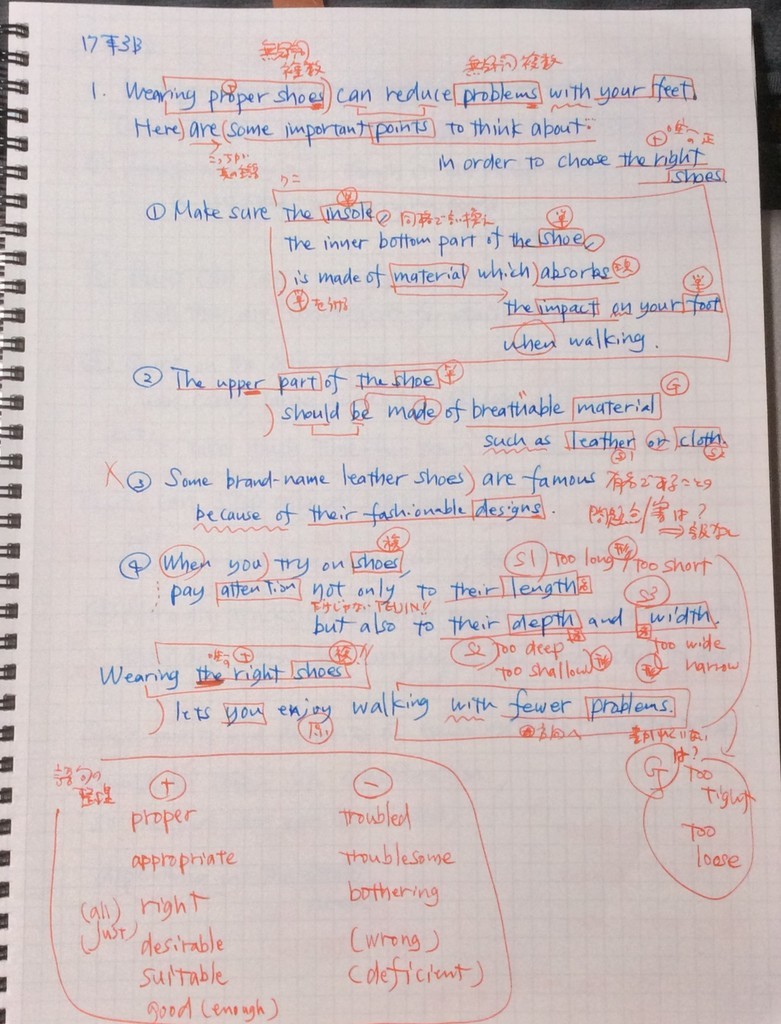 17 本3B
無冠詞
複数
無冠詞 複数
1. Wearing proper shoes) can reduce problems with your feet.
Here) are (some important points to think about:
in order to choose the right
shoes.
① Make sure the insole, 同格で言い換え
the inner bottom part of the shoe,
) is made of material which) absorbs
単 を受ける
the impact on your foot
when walking.
② The upper part of the shoe 単
) should be made of breathable material G
such as leather or cloth.
S1 S2
X ③ Some brand-name leather shoes) are famous 有名であることの
because of their fashionable designs. 問題点/害は?
④ When you) try on shoes, 複 S1 too long 形 too short
pay attention not only to their length 名
だけじゃない S3
but also to their depth and width.
S2 too deep 名 名 too wide
too shallow 形 形 narrow
唯一の + 複
Wearing the right shoes
) lets you enjoy walking with fewer problems.
原
方向へ
は?
G too
tight
too
loose
語句の
整理
+ −
proper troubled
appropriate troublesome
(all) right bothering
(just) desirable (wrong)
suitable (deficient)
good (enough)